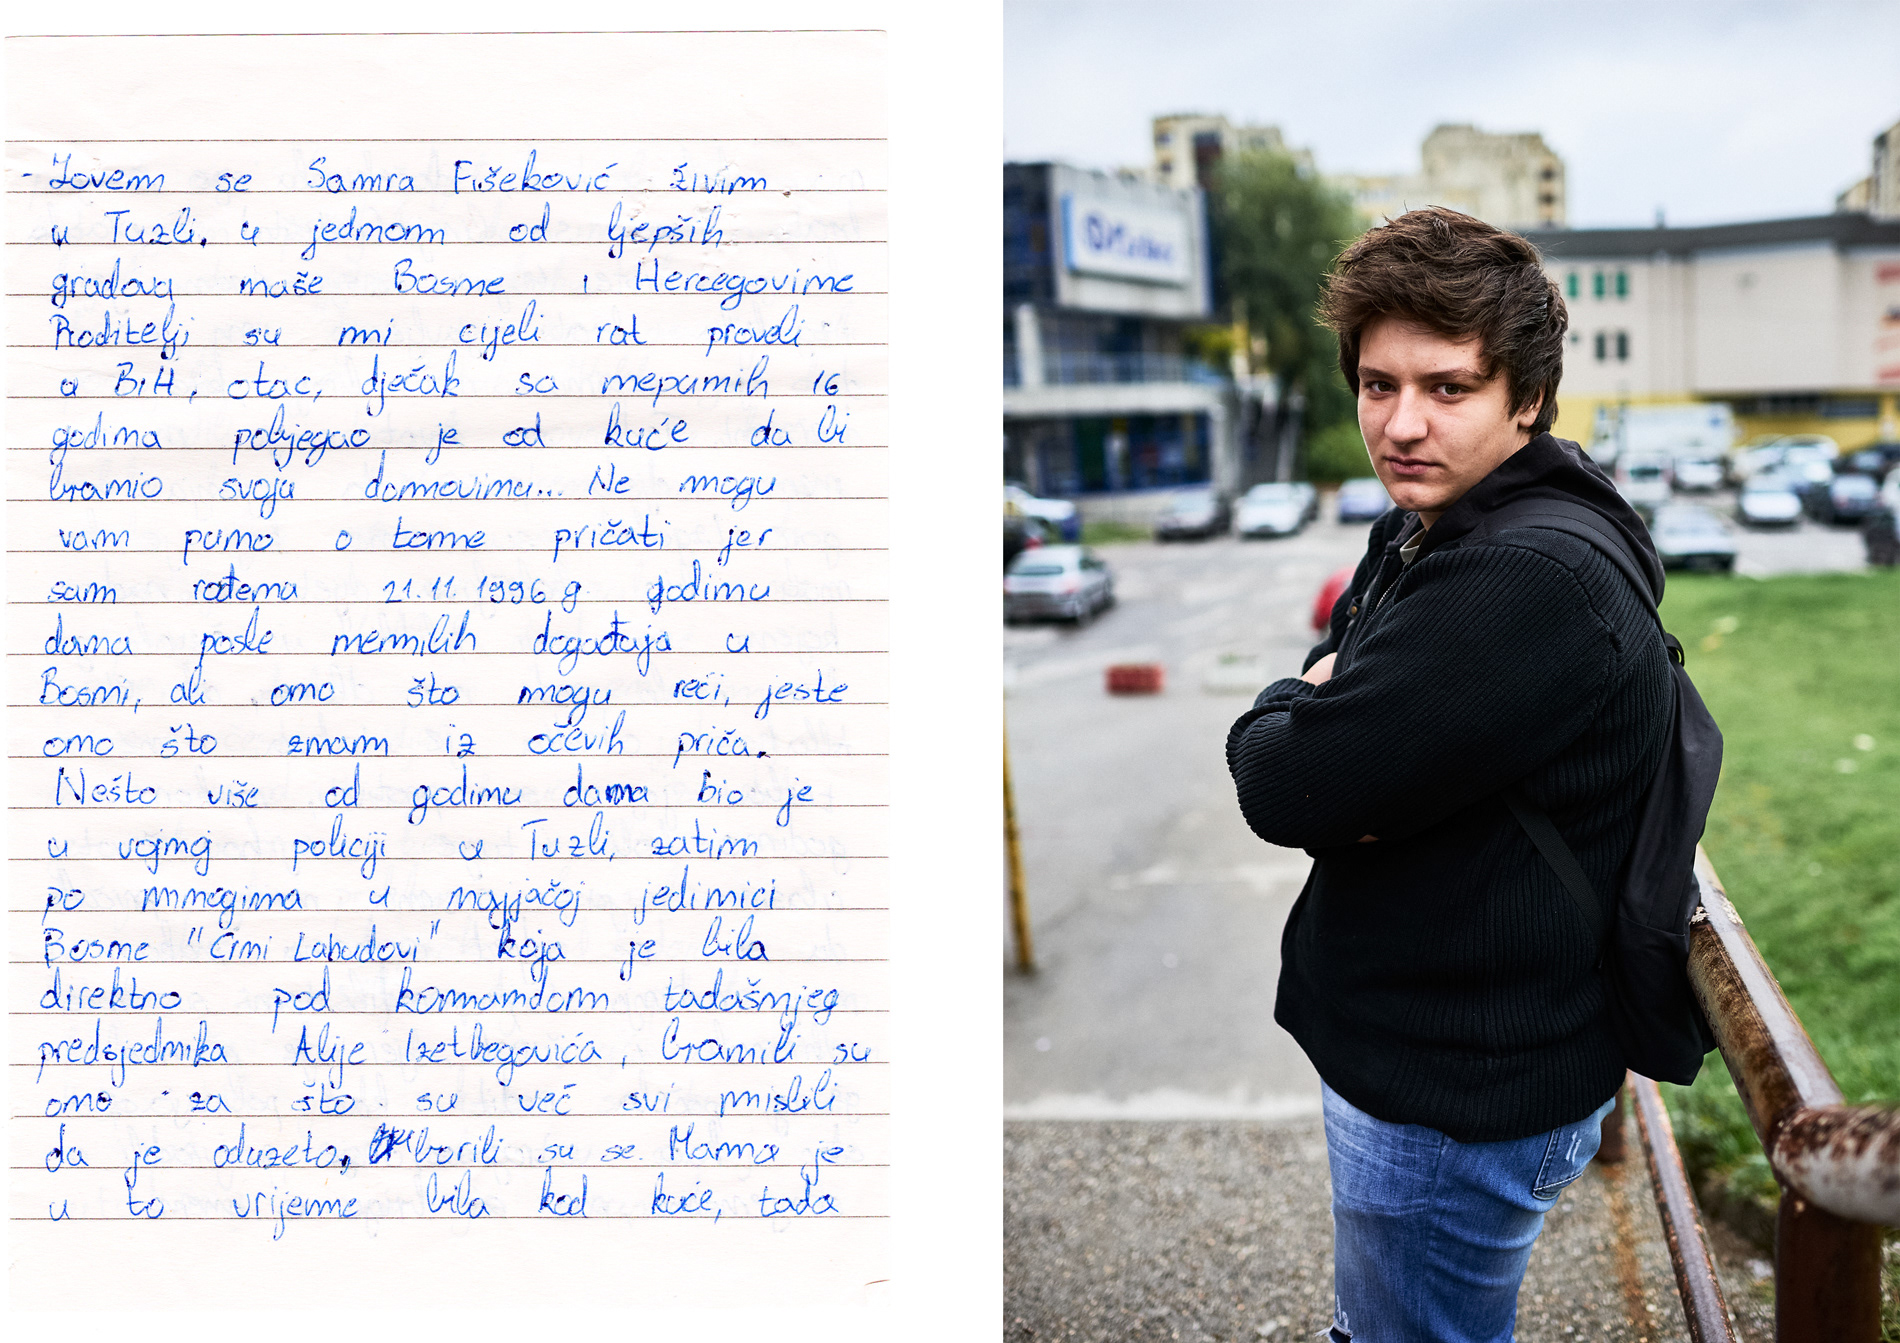 - Zovem se Samra Fišeković živim
u Tuzli, u jednom od ljepših
gradova naše Bosne i Hercegovine
Roditelji su mi cijeli rat proveli
u BiH, otac, dječak sa nepunih 16
godina pobjegao je od kuće da bi
branio svoju domovinu... Ne mogu
vam puno o tome pričati jer
sam rođena 21.11.1996 g. godinu
dana posle nemilih događaja u
Bosni, ali ono što mogu reći, jeste
ono što znam iz očevih priča.
Nešto više od godinu dana bio je
u vojnoj policiji u Tuzli, zatim
po mnogima u najjačoj jedinici
Bosne "Crni Labudovi" koja je bila
direktno pod komandom tadašnjeg
predsjednika Alije Izetbegovića, branili su
ono za što su već svi mislili
da je oduzeto, borili su se. Mama je
u to vrijeme bila kod kuće, tada